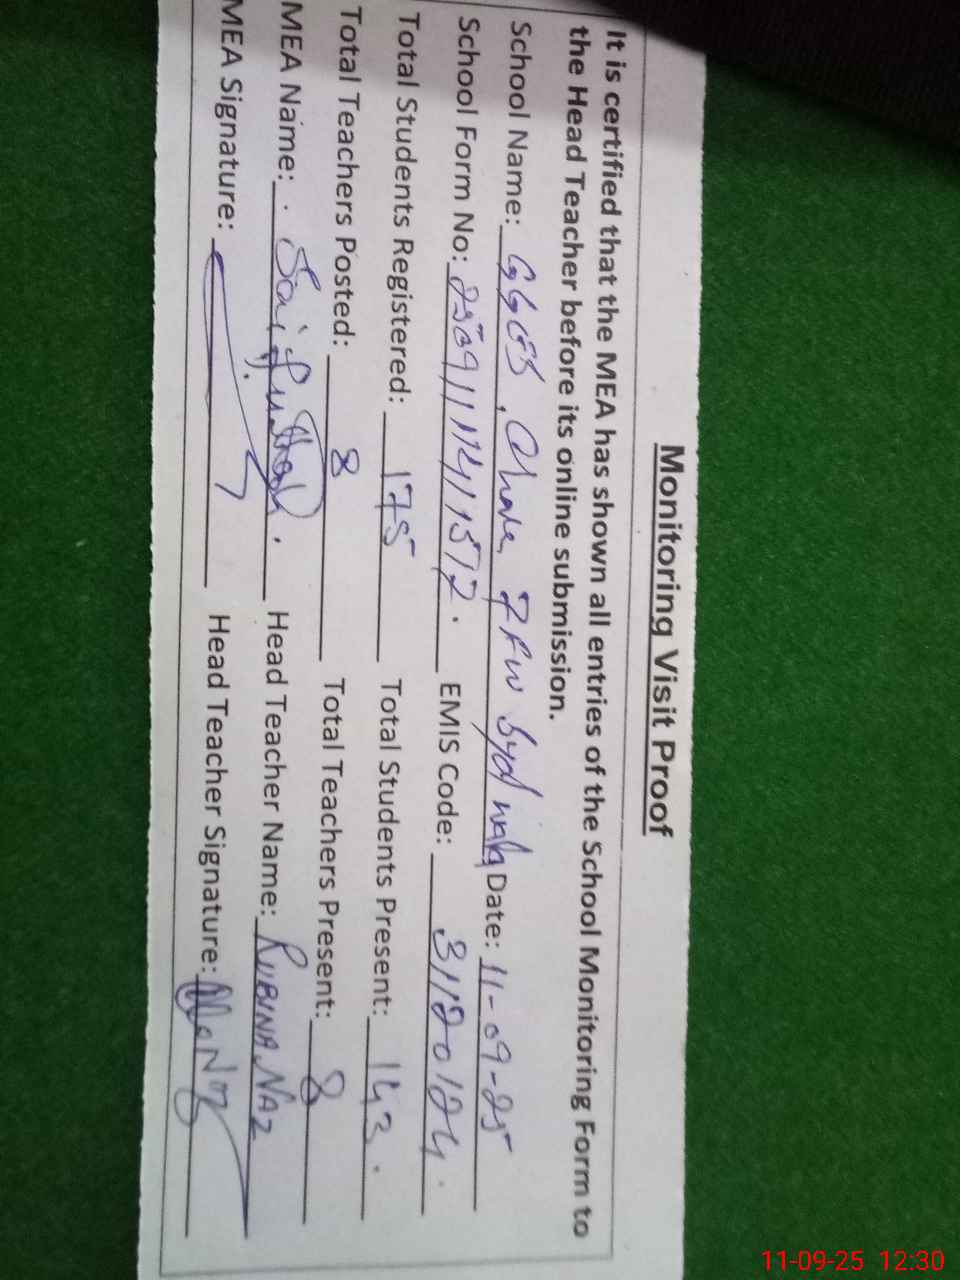 Monitoring Visit Proof
It is certified that the MEA has shown all entries of the School Monitoring Form to
the Head Teacher before its online submission.
School Name: GGES, Chak 7 FW Syed wala Date: 11-09-25
School Form No: 2509111741572. EMIS Code: 31120124.
Total Students Registered: 175 Total Students Present: 143.
Total Teachers Posted: 8 Total Teachers Present: 8
MEA Name: Saifullah. Head Teacher Name: RUBINA NAZ
MEA Signature: Head Teacher Signature:
11-09-25 12:30